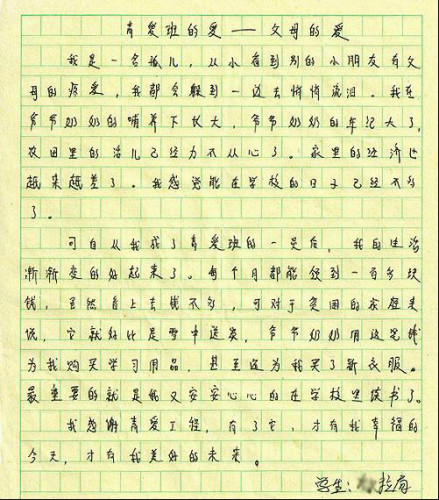 青爱班的爱——父母的爱
我是一名孤儿，从小看到别的小朋友有父
母的疼爱，我都会躲到一边去悄悄流泪。我在
爷爷奶奶的哺养下长大，爷爷奶奶的年记大了，
农田里的活儿已经力不从心了。家里的经济也
越来越差了。我感觉能在学校的日子已经不多
了。
可自从我成了青爱班的一员后，我的生活
渐渐变的好起来了。每个月都能领到一百多块
钱，虽然看上去钱不多，可对于贫困的家庭来
说，它就好比是雪中送炭，爷爷奶奶用这笔钱
为我购买学习用品，甚至还为我买了新衣服。
最重要的就是我又安安心心的在学校里读书了。
我感谢青爱工程，有了它，才有我幸福的
今天，才有我美好的未来。
学生：拉有